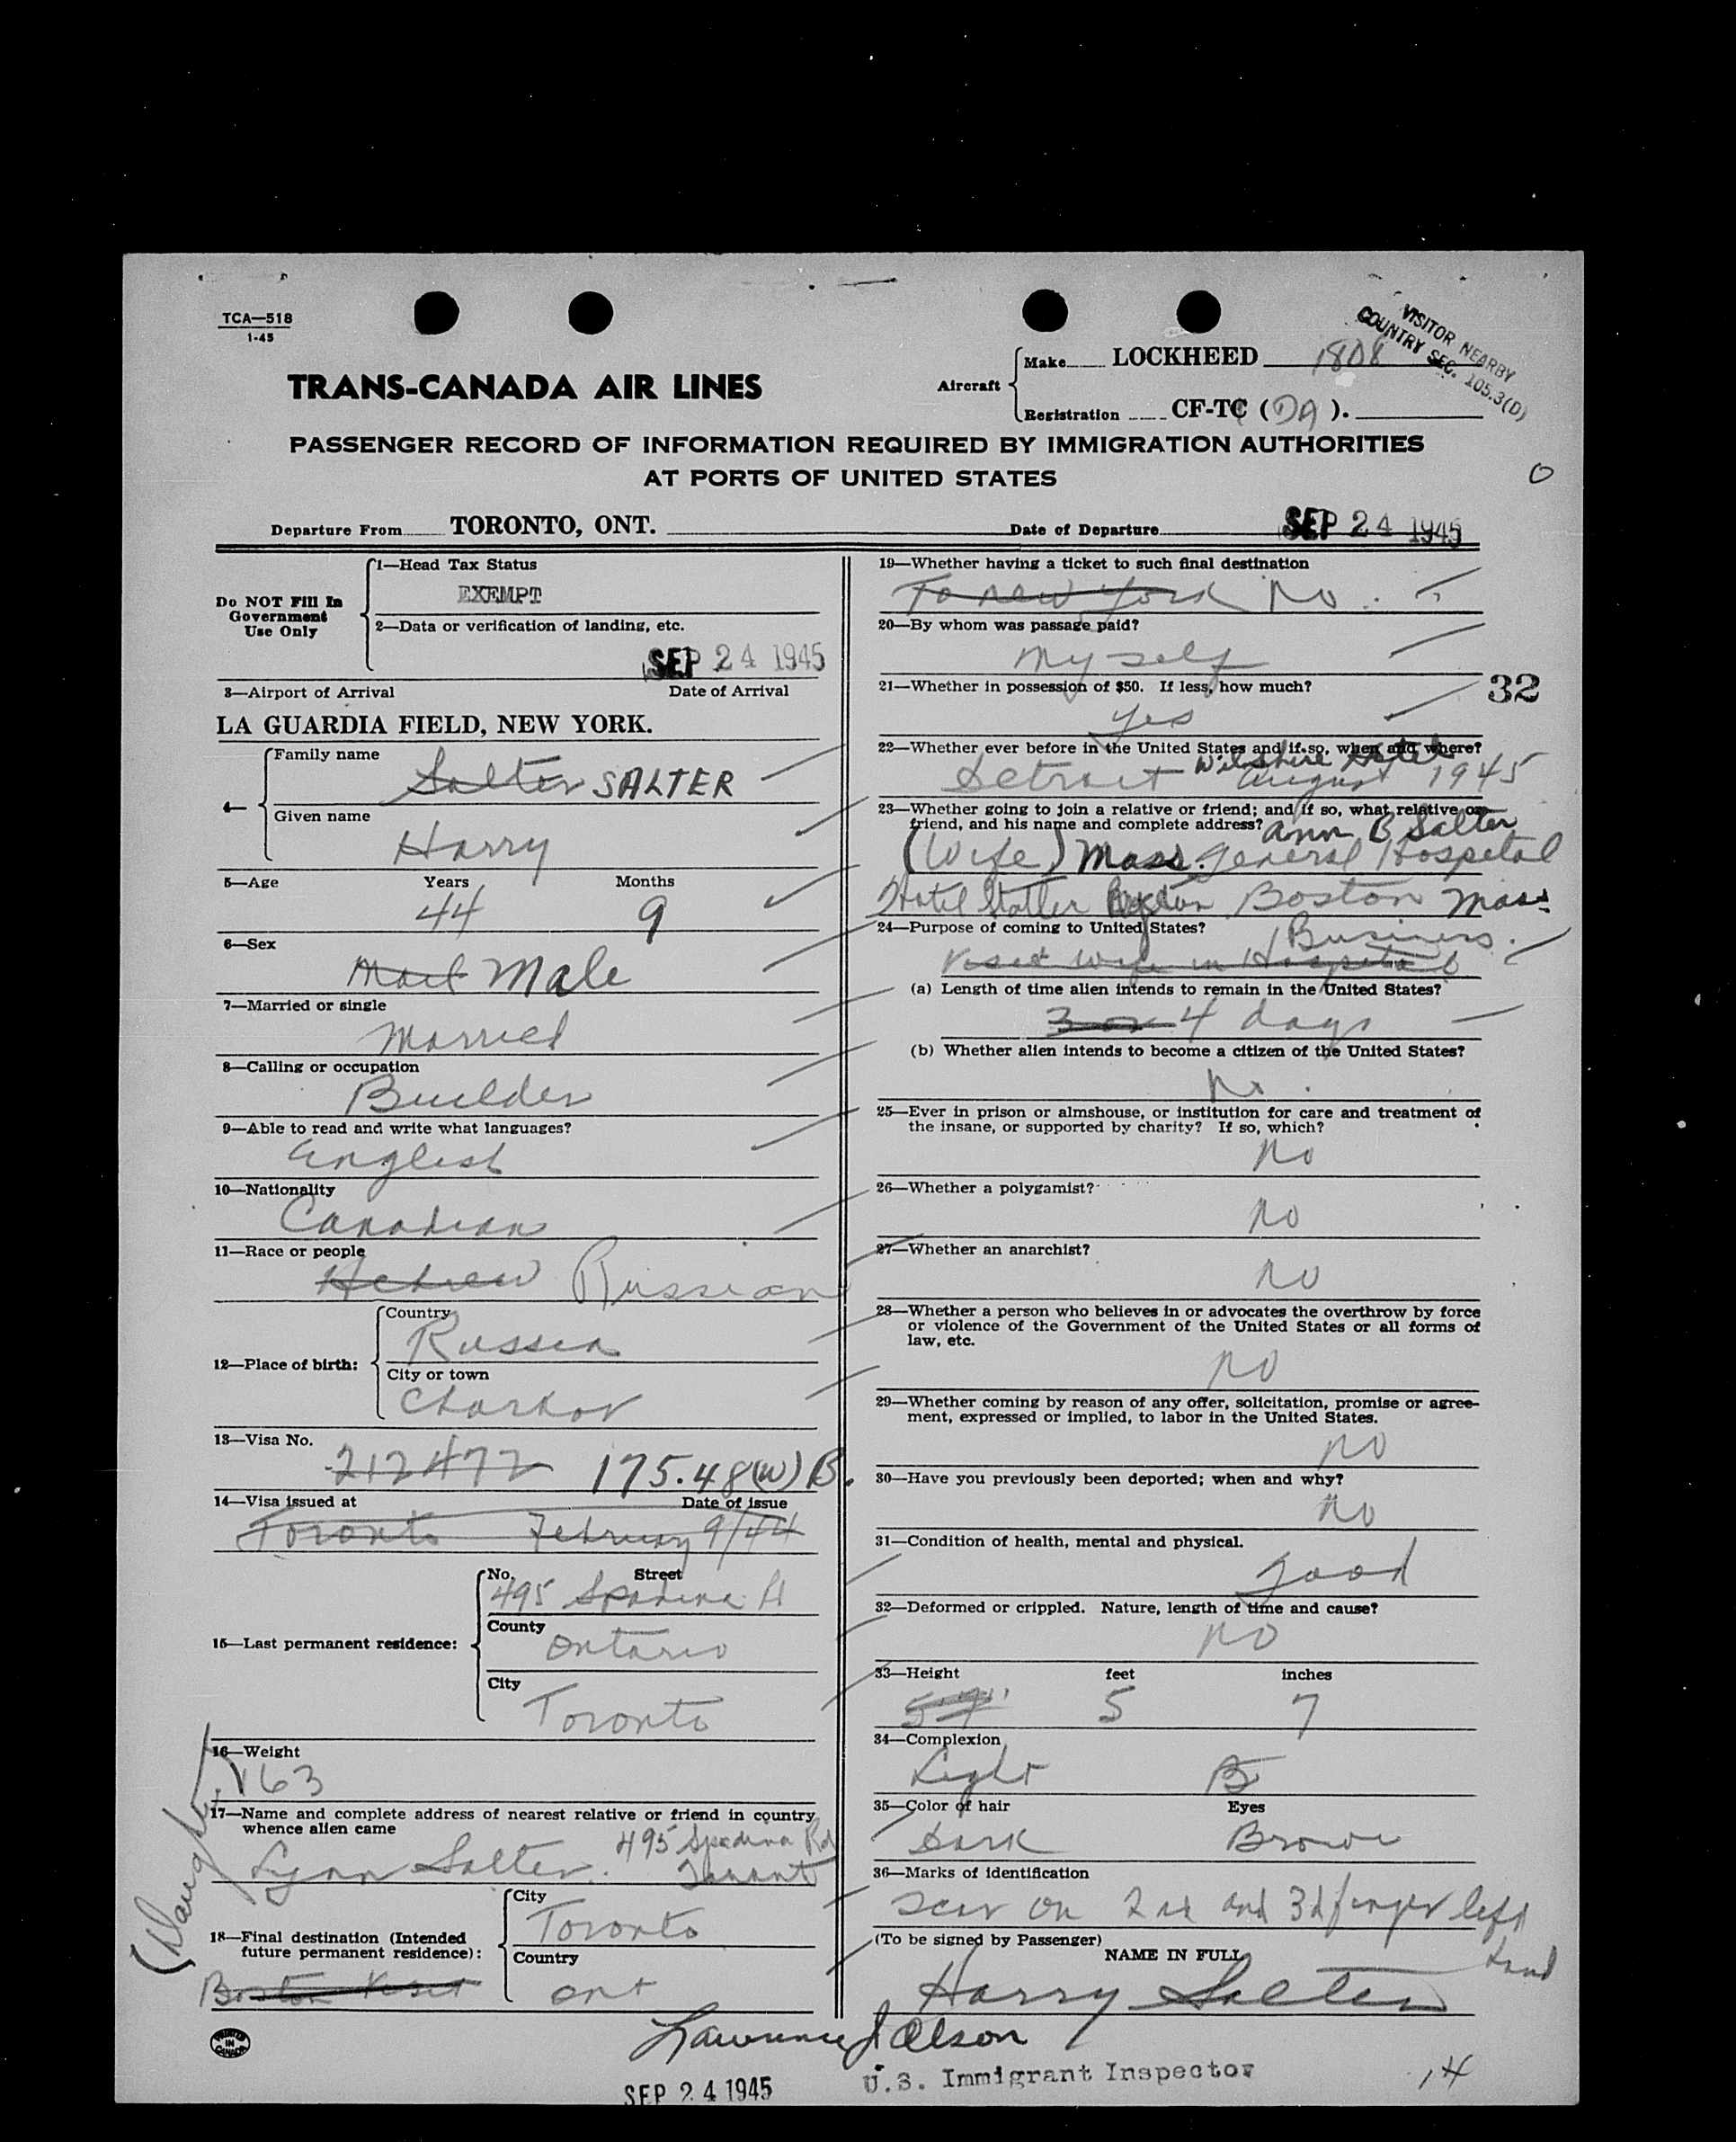 TCA—518
1-45
VISITOR NEARBY
COUNTRY SEC. 105.3(D)
TRANS-CANADA AIR LINES
Aircraft
Make LOCKHEED 1808
Registration CF-TC (DA).
PASSENGER RECORD OF INFORMATION REQUIRED BY IMMIGRATION AUTHORITIES
AT PORTS OF UNITED STATES
0
Departure From TORONTO, ONT. Date of Departure SEP 24 1945
Do NOT Fill In
Government
Use Only
1—Head Tax Status
EXEMPT
2—Data or verification of landing, etc.
SEP 24 1945
3—Airport of Arrival Date of Arrival
LA GUARDIA FIELD, NEW YORK.
4—
Family name
Salter SALTER
Given name
Harry
5—Age Years Months
44 9
6—Sex
Mael Male
7—Married or single
Married
8—Calling or occupation
Builder
9—Able to read and write what languages?
English
10—Nationality
Canadian
11—Race or people
Hebrew Russian
12—Place of birth:
Country
Russia
City or town
Charkov
13—Visa No.
212472 175.48(W) B.
14—Visa issued at Date of issue
Toronto February 9/44
15—Last permanent residence:
No. Street
495 Spadina
County
Ontario
City
Toronto
16—Weight
163
17—Name and complete address of nearest relative or friend in country
whence alien came
495 Spadina Rd
Lynn Salter. Toronto
(Daughter)
18—Final destination (Intended
future permanent residence):
Boston Visit
City
Toronto
Country
Ont
PRINTED
IN
CANADA
19—Whether having a ticket to such final destination
To New York No.
20—By whom was passage paid?
Myself
21—Whether in possession of $50. If less, how much?
32
Yes
22—Whether ever before in the United States and if so, when and where?
Wilshire Hotel
Detroit August 1945
23—Whether going to join a relative or friend; and if so, what relative or
friend, and his name and complete address? Ann B Salter
(Wife) Mass. General Hospital
Hotel Statler Boston Mass
24—Purpose of coming to United States?
Business.
Visit wife in Hospital
(a) Length of time alien intends to remain in the United States?
3 or 4 days
(b) Whether alien intends to become a citizen of the United States?
No.
25—Ever in prison or almshouse, or institution for care and treatment of
the insane, or supported by charity? If so, which?
No
26—Whether a polygamist?
No
27—Whether an anarchist?
No
28—Whether a person who believes in or advocates the overthrow by force
or violence of the Government of the United States or all forms of
law, etc.
No
29—Whether coming by reason of any offer, solicitation, promise or agree-
ment, expressed or implied, to labor in the United States.
No
30—Have you previously been deported; when and why?
No
31—Condition of health, mental and physical.
Good
32—Deformed or crippled. Nature, length of time and cause?
No
33—Height feet inches
5'7" 5 7
34—Complexion
Light B
35—Color of hair Eyes
Dark Brown
36—Marks of identification
Scar on 2nd and 3d finger left
hand
(To be signed by Passenger)
NAME IN FULL
Harry Salter
Lawrence J Olson
U.S. Immigrant Inspector
SEP 24 1945
14